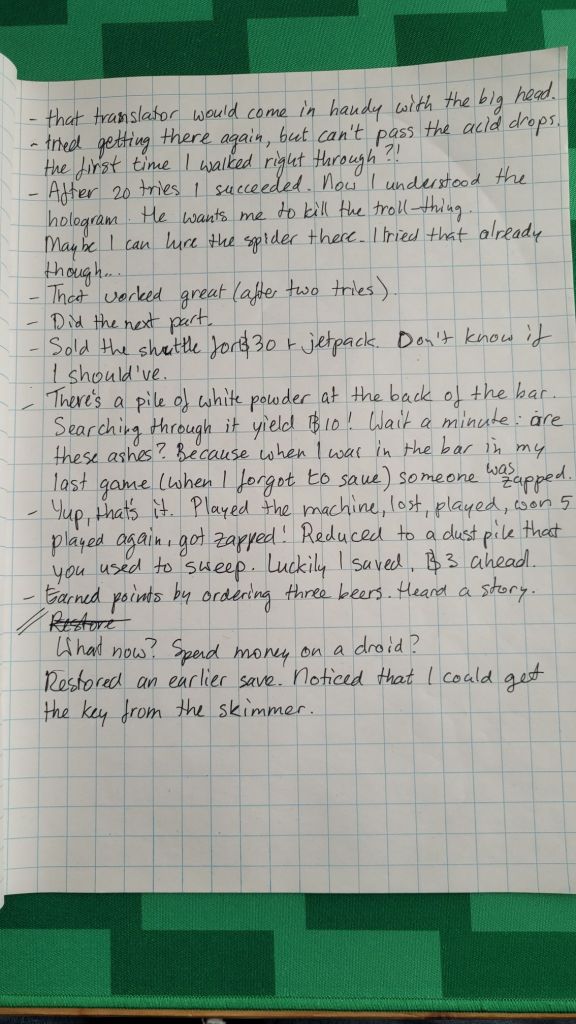 - that translator would come in handy with the big head.
- tried getting there again, but can't pass the acid drops.
the first time I walked right through?!
- After 20 tries I succeeded. Now I understood the
hologram. He wants me to kill the troll-thing.
Maybe I can lure the spider there. I tried that already
though...
- That worked great (after two tries).
- Did the next part.
- Sold the shuttle for ฿30 + jetpack. Don't know if
I should've.
- There's a pile of white powder at the back of the bar.
Searching through it yield ฿10! Wait a minute: are
these ashes? Because when I was in the bar in my
last game (when I forgot to save) someone was zapped.
- Yup, that's it. Played the machine, lost, played, won 5
played again, got zapped! Reduced to a dust pile that
you used to sweep. Luckily I saved, ฿3 ahead.
- Earned points by ordering three beers. Heard a story.
// Restore
What now? Spend money on a droid?
Restored an earlier save. Noticed that I could get
the key from the skimmer.